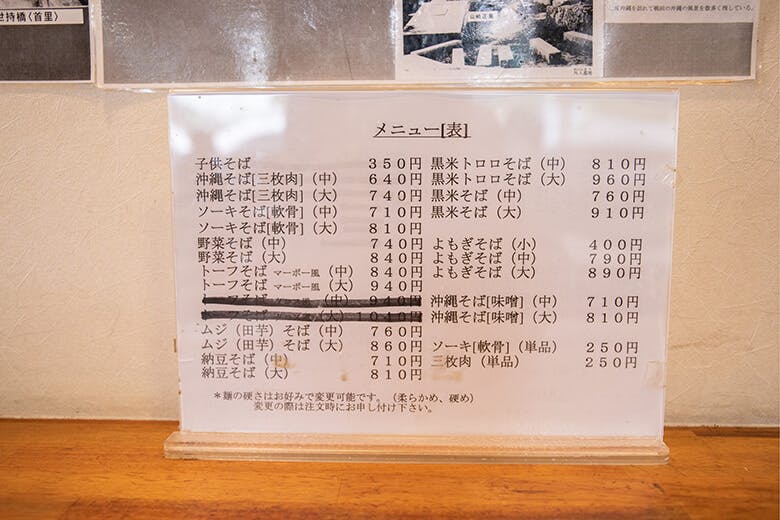 世持橋〈首里〉
メニュー[表]
子供そば 350円
沖縄そば[三枚肉]（中） 640円
沖縄そば[三枚肉]（大） 740円
ソーキそば[軟骨]（中） 710円
ソーキそば[軟骨]（大） 810円
野菜そば（中） 740円
野菜そば（大） 840円
トーフそば マーボー風（中） 840円
トーフそば マーボー風（大） 940円
（中） 940円
（大） 1040円
ムジ（田芋）そば（中） 760円
ムジ（田芋）そば（大） 860円
納豆そば（中） 710円
納豆そば（大） 810円
黒米トロロそば（中） 810円
黒米トロロそば（大） 960円
黒米そば（中） 760円
黒米そば（大） 910円
よもぎそば（小） 400円
よもぎそば（中） 790円
よもぎそば（大） 890円
沖縄そば[味噌]（中） 710円
沖縄そば[味噌]（大） 810円
ソーキ[軟骨]（単品） 250円
三枚肉（単品） 250円
＊麺の硬さはお好みで変更可能です。（柔らかめ、硬め）
変更の際は注文時にお申し付け下さい。